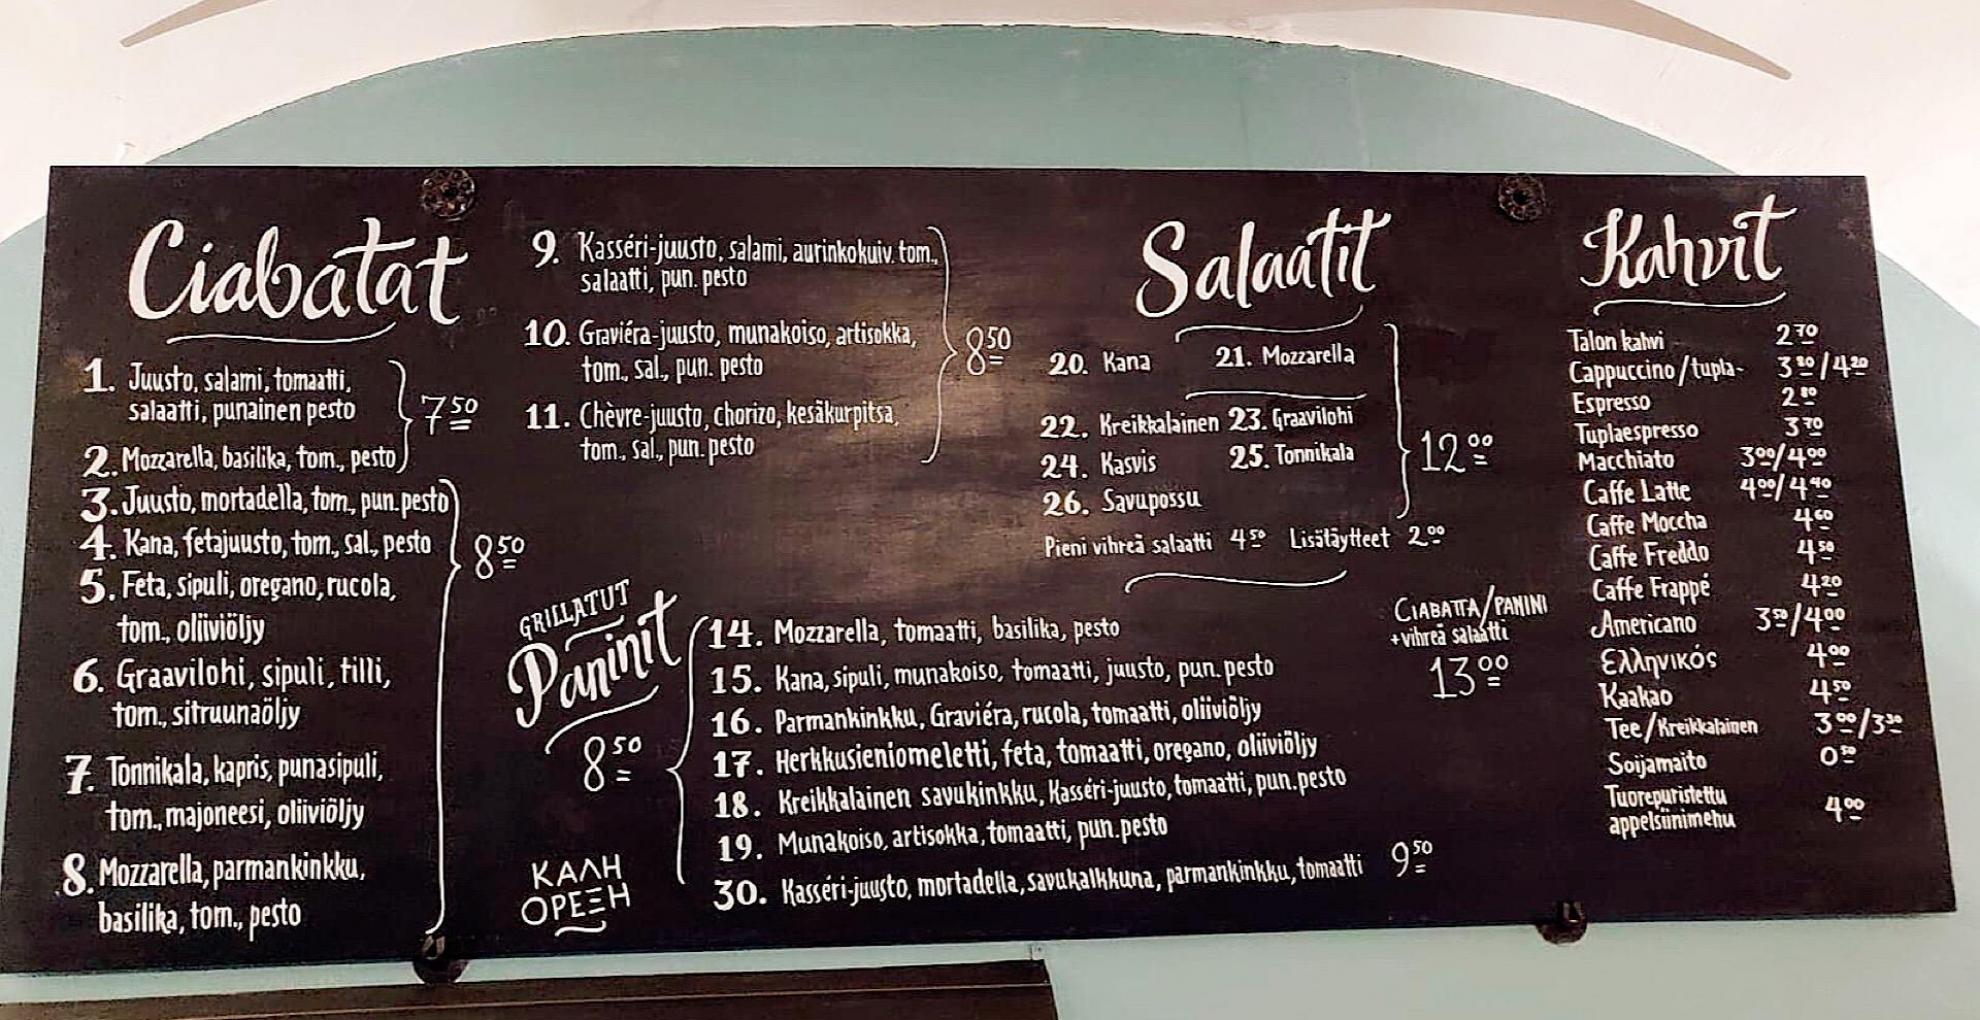 Ciabatat
1. Juusto, salami, tomaatti,
salaatti, punainen pesto
7 50
2. Mozzarella, basilika, tom., pesto
3. Juusto, mortadella, tom., pun.pesto
4. Kana, fetajuusto, tom., sal., pesto
8 50
5. Feta, sipuli, oregano, rucola,
tom., oliiviöljy
6. Graavilohi, sipuli, tilli,
tom., sitruunaöljy
7. Tonnikala, kapris, punasipuli,
tom., majoneesi, oliiviöljy
8. Mozzarella, parmankinkku,
basilika, tom., pesto
9. Kasséri-juusto, salami, aurinkokuiv. tom.,
salaatti, pun. pesto
10. Graviéra-juusto, munakoiso, artisokka,
tom., sal., pun. pesto
8 50
11. Chèvre-juusto, chorizo, kesäkurpitsa,
tom., sal., pun. pesto
GRILLATUT
Paninit
8 50
ΚΑΛΗ
ΟΡΕΞΗ
14. Mozzarella, tomaatti, basilika, pesto
15. Kana, sipuli, munakoiso, tomaatti, juusto, pun. pesto
16. Parmankinkku, Graviéra, rucola, tomaatti, oliiviöljy
17. Herkkusieniomeletti, feta, tomaatti, oregano, oliiviöljy
18. Kreikkalainen savukinkku, Kasséri-juusto, tomaatti, pun.pesto
19. Munakoiso, artisokka, tomaatti, pun.pesto
30. Kasséri-juusto, mortadella, savukalkkuna, parmankinkku, tomaatti 9 50
Salaatit
20. Kana 21. Mozzarella
22. Kreikkalainen 23. Graavilohi
24. Kasvis 25. Tonnikala
12 00
26. Savupossu
Pieni vihreä salaatti 4 50 Lisätäytteet 2 00
CIABATTA/PANINI
+vihreä salaatti
13 00
Kahvit
Talon kahvi 2 70
Cappuccino/tupla- 3 80/4 20
Espresso 2 80
Tuplaespresso 3 70
Macchiato 3 00/4 00
Caffe Latte 4 00/4 40
Caffe Moccha 4 60
Caffe Freddo 4 50
Caffe Frappé 4 20
Americano 3 50/4 00
Ελληνικός 4 00
Kaakao 4 50
Tee/Kreikkalainen 3 00/3 30
Soijamaito 0 50
Tuorepuristettu
appelsiinimehu 4 00